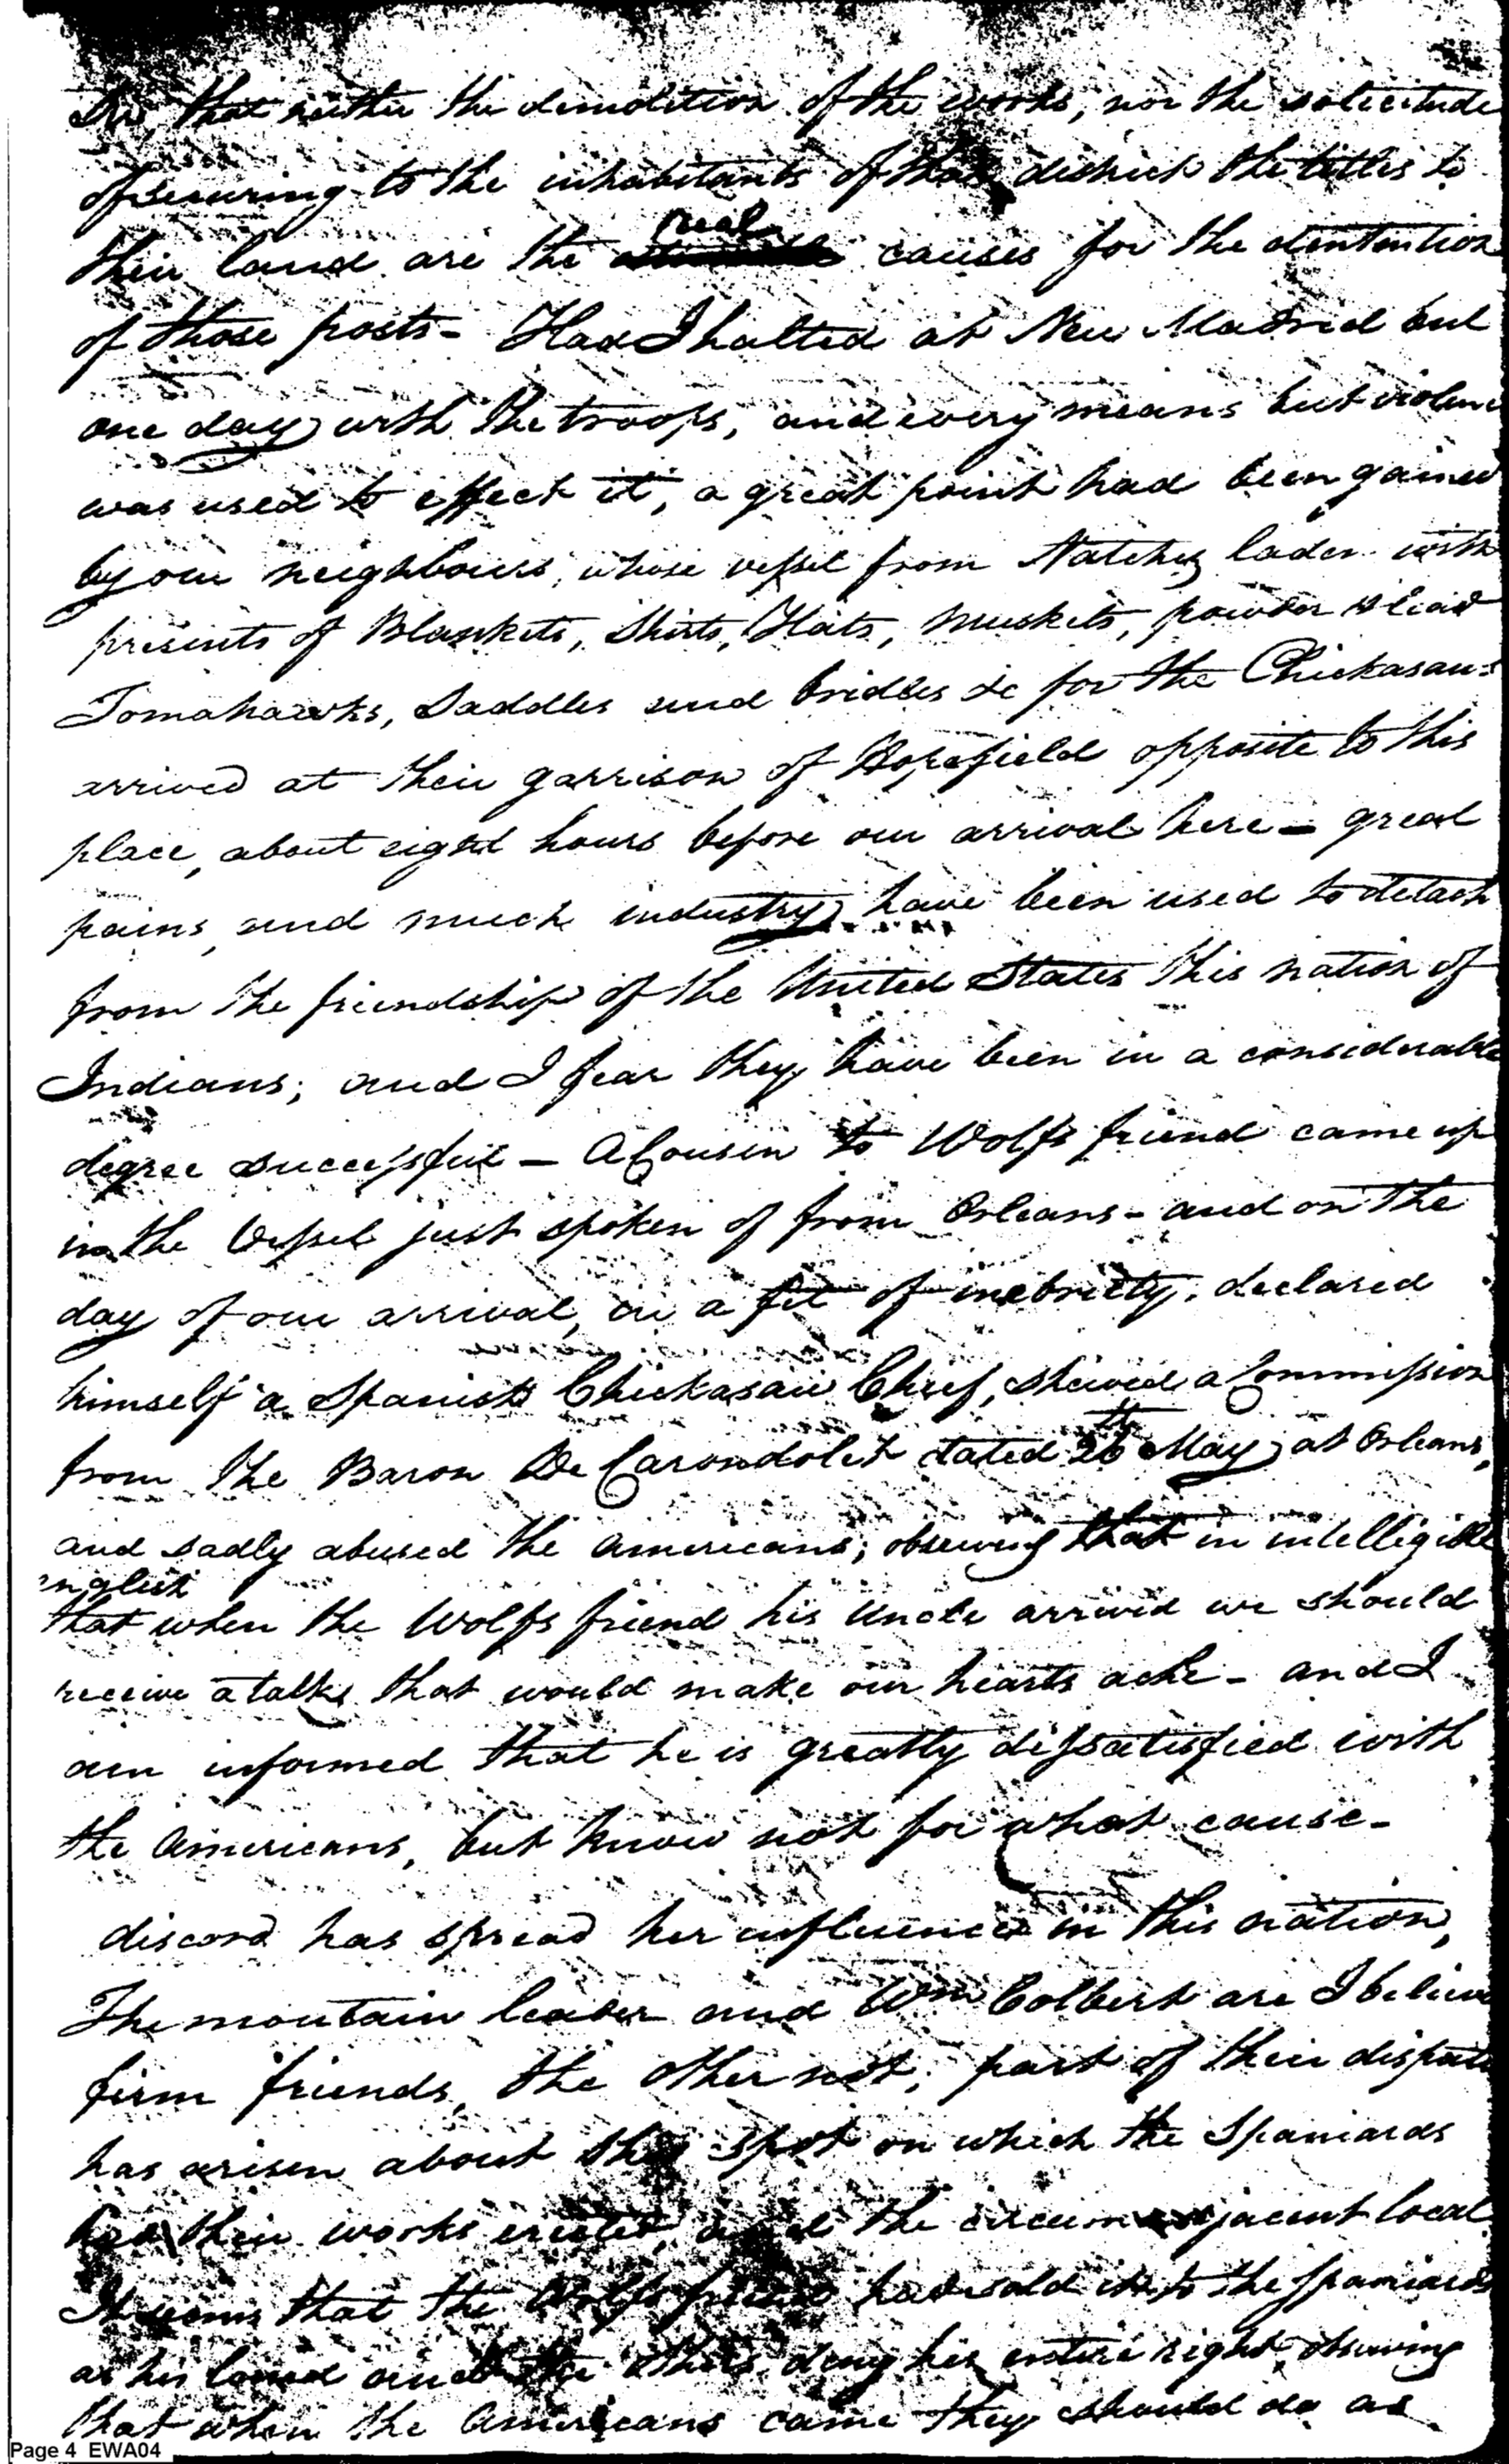 Sir, that neither the demolition of the works, nor the solicitude
of securing to the inhabitants of that district the titles to
real
their land are the causes for the dentention
of those posts - Had I halted at New Madrid but
one day with the troops, and every means but violence
was used to effect it, a great point had been gained
by our neighbours, whose vessel from Natchez laden with
presents of Blankets, Shirts, Hats, muskets, powder & lead
Tomahawks, Saddles and bridles &c for the Chickasaws
arrived at their garrison of Hopefield opposite to this
place, about eight hours before our arrival here - great
pains, and much industry have been used to detach
from the friendship of the United States this nation of
Indians; and I fear they have been in a considerable
degree successful - A Cousin to Wolfs friend came up
in the Vessel just spoken of from Orleans - and on the
day of our arrival, in a fit of inebriety, declared
himself a Spanish Chickasaw Chief, shewed a Commission
from the Baron De Carondolet dated 26th May at Orleans,
and sadly abused the Americans; observing that in intelligible
english
that when the Wolfs friend his Uncle arrived we should
receive a talk that would make our hearts ache - and I
am informed that he is greatly dissatisfied with
the Americans, but know not for what cause -
discord has spread her influence in this nation,
The mountain leader and Wm Colbert are I believe
firm friends, the other not; part of their dispute
has arisen about the spot on which the Spaniards
had their works erected, and the circumjacent local
It seems that the Wolfs friend had sold it to the Spaniards
as his land and the others deny his entire right, observing
that when the Americans came they should do as
Page 4 EWA04